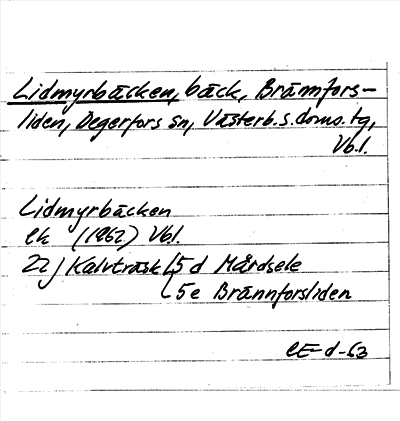 Lidmyrbäcken, bäck, Brännfors-
liden, Degerfors sn, Västerb. s. doms. tg,
Vb.l.
Lidmyrbäcken
ek (1962) Vbl.
22j Kalvträsk 5 d Mårdsele
5e Brännforsliden
CE-d-63